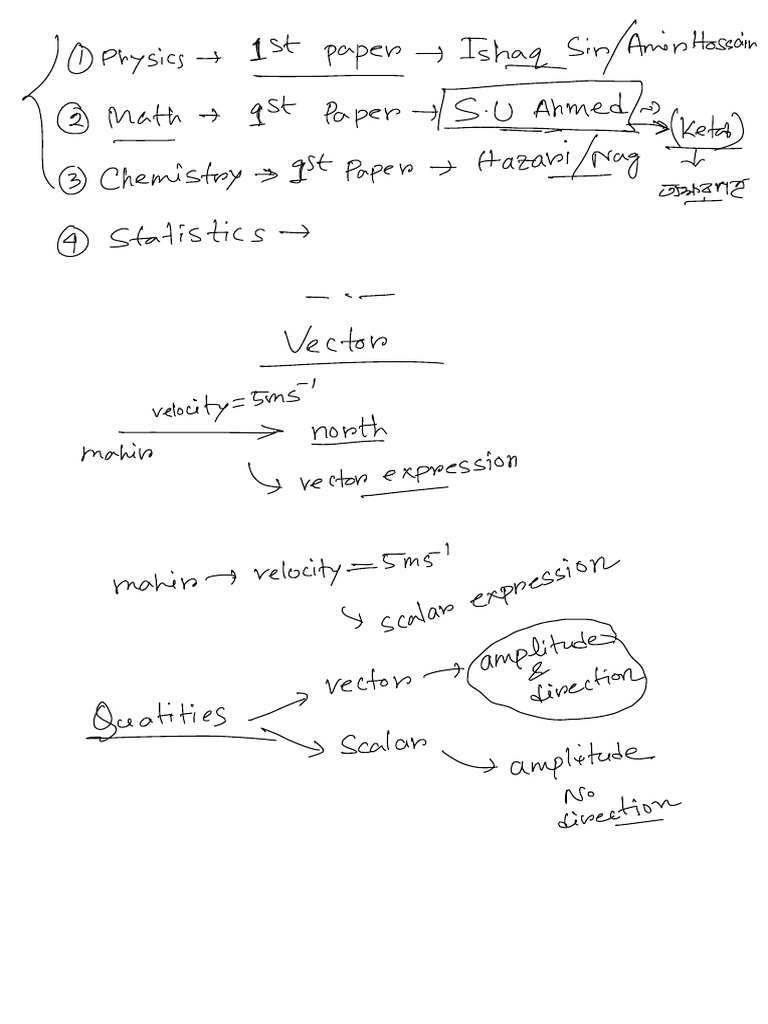 ① Physics → 1st paper → Ishaq Sir/Amir Hossain
② Math → 1st Paper → S.U Ahmed → (Ketab)
③ Chemistry → 1st Paper → Hazari/Nag
④ Statistics →
Vector
velocity = 5ms⁻¹
mahir → north
↳ vector expression
mahir → velocity = 5ms⁻¹
↳ scalar expression
Quatities → vector → amplitude & direction
→ Scalar → amplitude
No
direction